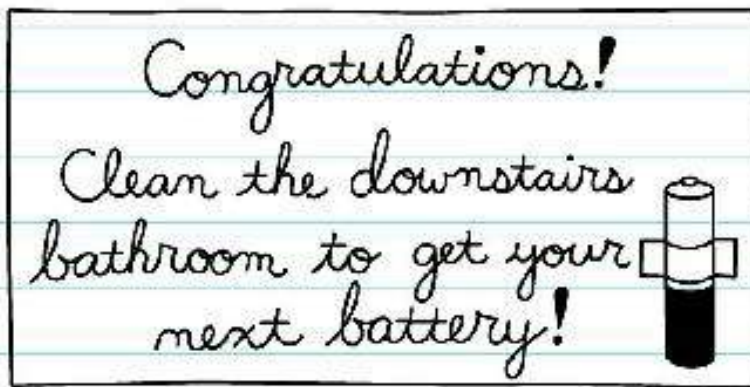 Congratulations!
Clean the downstairs
bathroom to get your
next battery!